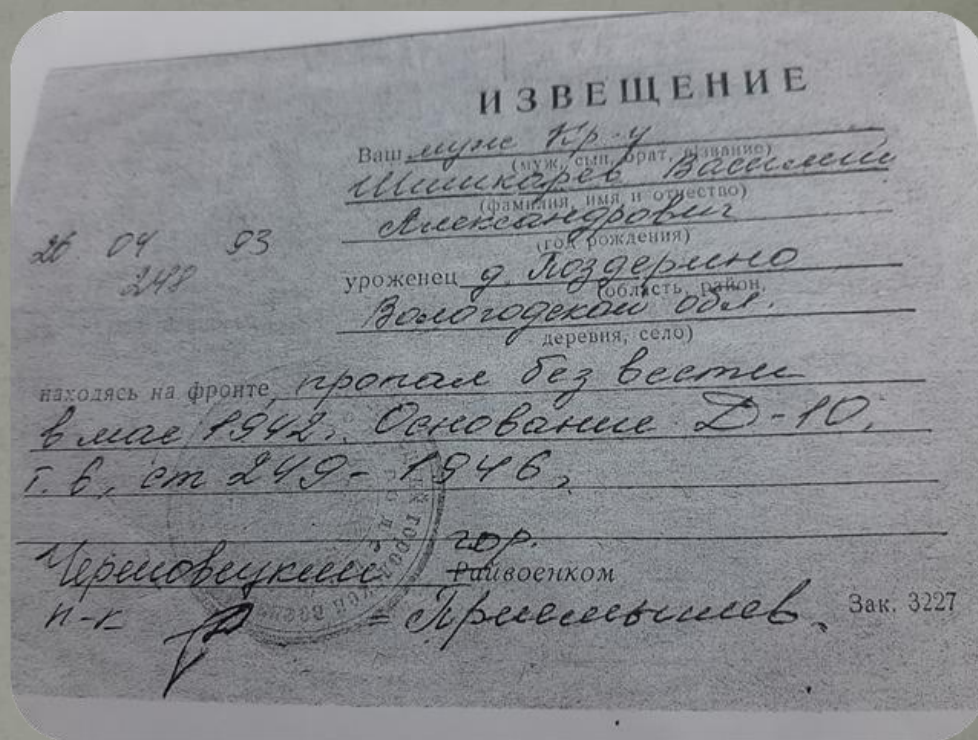 ИЗВЕЩЕНИЕ
Ваш муж Кр-ц
(муж, сын, брат, звание)
Шишкарев Василий
(фамилия, имя и отчество)
Александрович
(год рождения)
26 04 93
248
уроженец д. Поздерино
(область, район,
Вологодской обл.
деревня, село)
находясь на фронте, пропал без вести
в мае 1942г. Основание Д-10,
т. 6, ст 249 - 1946,
гор.
Череповецкий Райвоенком
п-к = Приемышев.
Зак. 3227